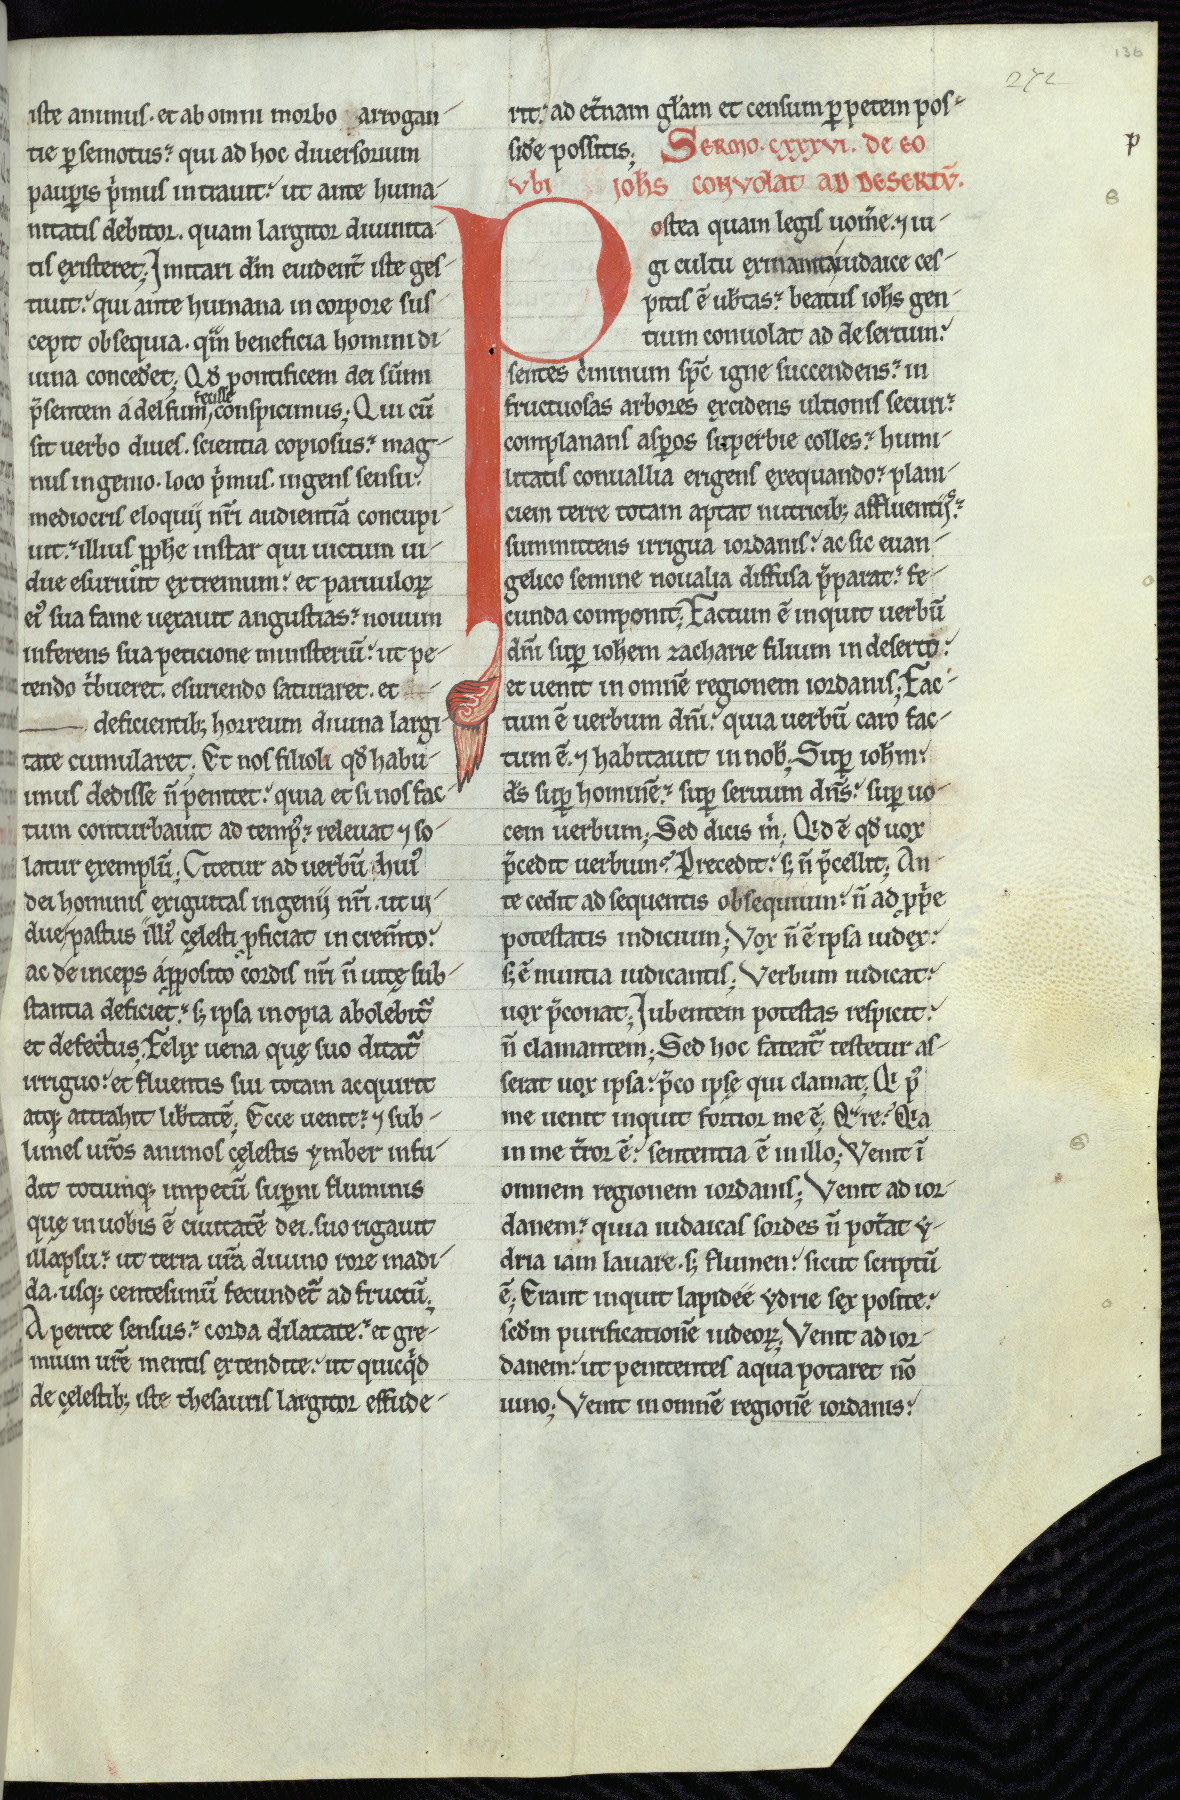 136
272
iste animus. et ab omni morbo arrogan-
tie p̱semotus? qui ad hoc diuersorium
paup̱is p̓mus intrauit? ut ante huma-
nitatis debitor. quam largitor diuinita-
tis ęxisteret; Imitari dn̄m euident̄ iste ges-
tiuit? qui ante humana in corpore sus
cepit obsequia. qm̄ beneficia homini di
uina concedet; Qđ pontificem dei sūm
p̄sentem ádelfum, fecisse conspicimus; Qui cū
sit uerbo diues. scientia copiosus? mag-
nus ingenio. loco p̓mus. ingens sensu?
mediocris eloquij nr̄i audientiā concupi
uit? illius ꝓphe instar qui uictum ui-
due esuriuit extremum? et paruuloꝝ
ei᷒ sua fame uęxauit angustias? nouum
inferens sua peticione ministeriū? ut pe-
tendo t̓bueret. esuriendo saturaret. et
deficientib; horreum diuina largi
tate cumularet; Et nos filioli qđ habu-
imus dedisse ñ penitet? quia et si nos fac-
tum conturbauit ad temp᷒? releuat ⁊ so-
latur ęxemplū; Citetur ad uerbū hui᷒
dei hominis ęxiguitas ingenij nr̄i. ut ui-
due pastus illi᷒ cęlesti ꝓficiat in crem̄to?
ac deinceps áꝓposito cordis nr̄i ñ uitę sub-
stantia deficiet? s; ipsa inopia abolebit᷑
et defectus; Felix uena quę suo ditat᷑
irriguo? et fluentis sui totam acquirit
atq; attrahit lib̄tatē; Ecce uenit? ⁊ sub-
limes ur̄os animos cęlestis ymber infu-
dit totumq; impetū sup̱ni fluminis
quę in uobis ē ciuitatē dei. suo rigauit
illapsu? ut terra ur̄a diuino rore madi-
da. usq; centesimū fecundet᷑ ad fructū;
Aperite sensus? corda dilatate? et gre-
mium ur̄e mentis extendite? ut quicq̓d
de cęlestib; iste thesauris largitor effude-
rit? ad et̄nam gl̄am et censum p̱petem pos-
sid̄e possitis; Sermo. cxxxvi. de eo
vbi ioh̄s convolat ad desertv̄.
Postea quam legis uom̄e. ⁊ iu-
gi cultu exinanita iudaice ces-
pitis ē ub̄tas? beatus ioh̄s gen-
tium conuolat ad desertum?
sentes criminum sp̄c igne succendens? in
fructuosas arbores ęxcidens ultionis securi?
complanans asp̱os sup̱bie colles? humi-
litatis conuallia erigens ęxequando? plani-
ciem terre totam aptat nutricib; affluentijs?
summittens irrigua iordanis? ac sic euan-
gelico semine noualia diffusa p̄parat? fe-
cunda componit; Factum ē inquit uerbū
dn̄i sup̱ ioh̄em zacharie filium in deserto?
et uenit in omnē regionem iordanis; Fac-
tum ē uerbum dn̄i? quia uerbū caro fac-
tum ē. ⁊ habitauit in nob̄; Sup̱ ioh̄m?
ds̄ sup̱ hominē? sup̱ seruum dn̄s? sup̱ uo-
cem uerbum; Sed dicis m̓; Qđ ē qđ uox
p̄cedit uerbum? Precedit? s; ñ p̄cellit; An-
tecedit ad sequentis obsequium? ñ ad ꝓp̓e
potestatis indicium; Vox ñ ē ipsa iudęx?
s; ē nuntia iudicantis; Verbum iudicat?
uox p̄conat; Iubentem potestas respicit?
ñ clamantem; Sed hoc fateat᷑ testetur as-
serat uox ipsa? p̄co ipsę qui clamat; Q̓ p᷒
me uenit inquit fortior me ē; Q̓re? Q̓a
in me t̄ror ē? sententia ē in illo; Venit ī
omnem regionem iordanis; Venit ad ior-
danem? quia iudaicas sordes ñ pot̄at y-
dria iam lauare. s; flumen? sicut scriptū
ē; Erant inquit lapideę ydrie sęx posite?
sed̄m purificationē iudeoꝝ; Venit ad ior-
danem? ut penitentes aqua potaret nō
uino; Venit in omnē regionē iordanis?
p